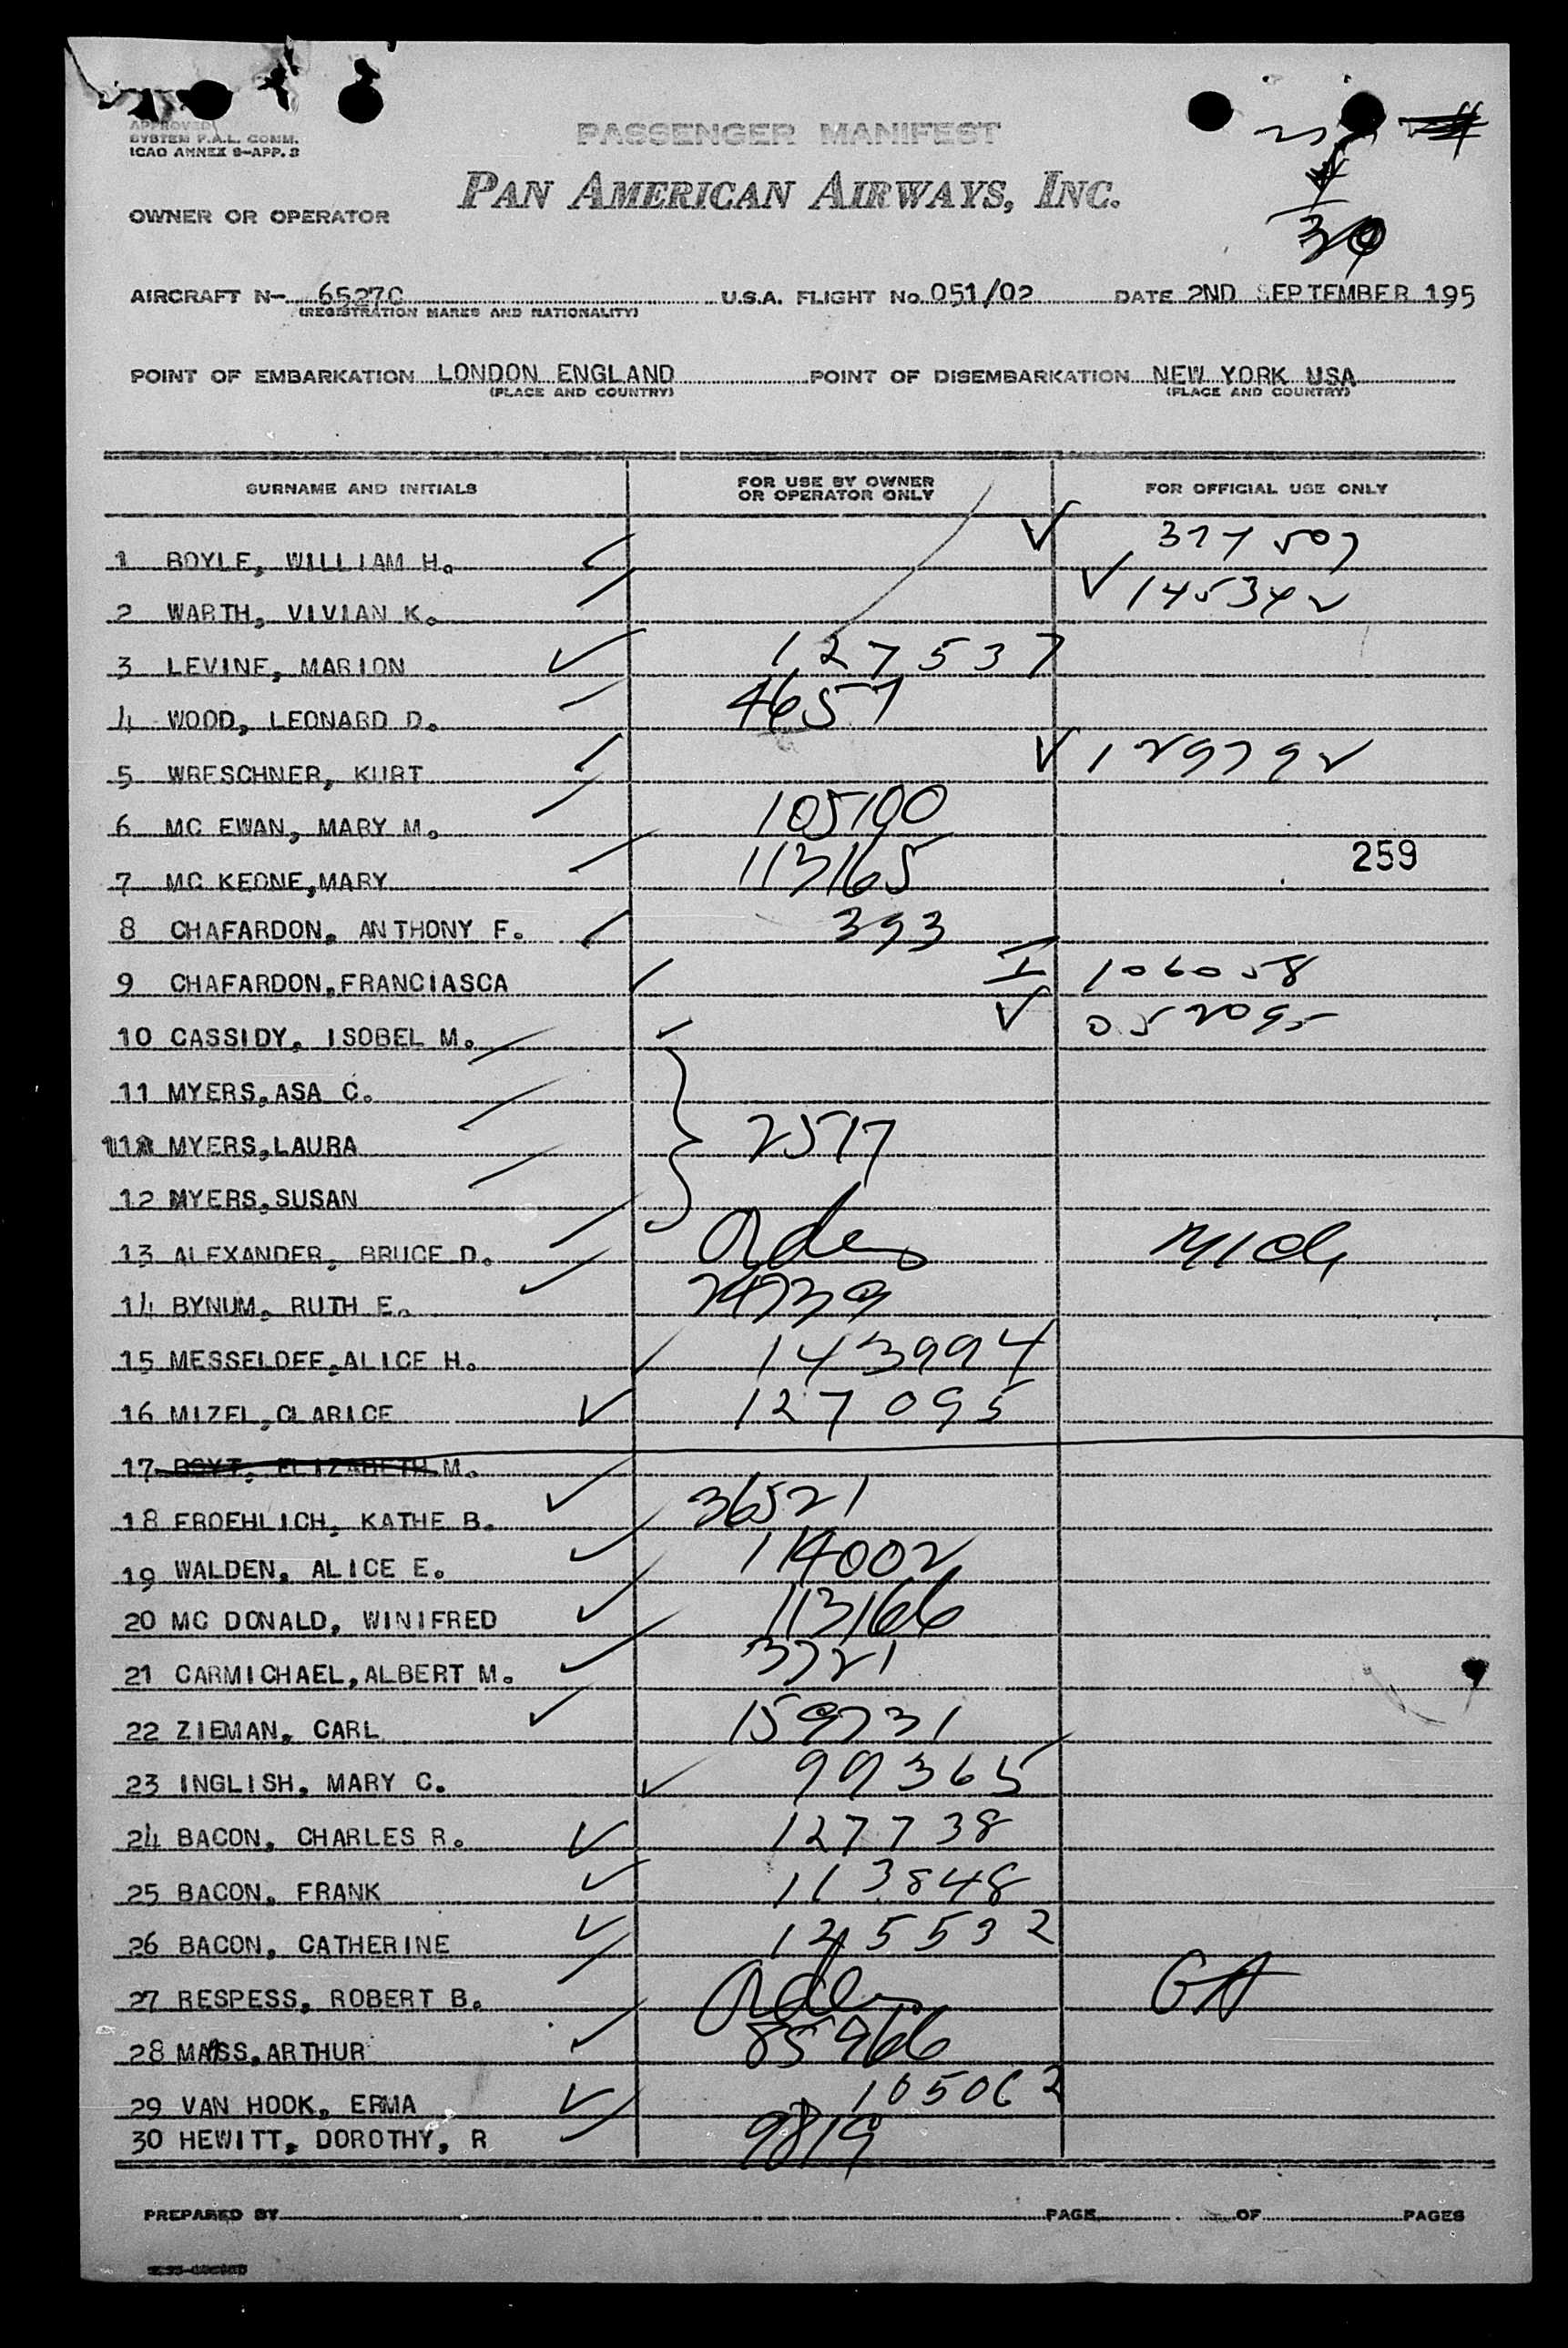 APPROVED
SYSTEM P.A.L. COMM.
ICAO ANNEX 9-APP. 3
PASSENGER MANIFEST
PAN AMERICAN AIRWAYS, INC.
OWNER OR OPERATOR
30
AIRCRAFT N- 6527C U.S.A. FLIGHT No. 051/02 DATE 2ND SEPTEMBER 195
(REGISTRATION MARKS AND NATIONALITY)
POINT OF EMBARKATION LONDON ENGLAND POINT OF DISEMBARKATION NEW YORK USA
(PLACE AND COUNTRY) (PLACE AND COUNTRY)
SURNAME AND INITIALS FOR USE BY OWNER OR OPERATOR ONLY FOR OFFICIAL USE ONLY
1 BOYLE, WILLIAM H. ✓ 377507
2 WARTH, VIVIAN K. ✓ 145342
3 LEVINE, MARION ✓ 127537
4 WOOD, LEONARD D. 4657
5 WRESCHNER, KURT ✓ 129792
6 MC EWAN, MARY M. 105100
7 MC KEONE,MARY 113165 259
8 CHAFARDON, ANTHONY F. ✓ 393
9 CHAFARDON,FRANCIASCA ✓ I 106058
10 CASSIDY, ISOBEL M. ✓ ✓ 052095
11 MYERS,ASA C.
11A MYERS,LAURA 2517
12 MYERS,SUSAN
13 ALEXANDER, BRUCE D. Orders Mich
14 BYNUM, RUTH E. ✓ 24739
15 MESSELOFF,ALICE H. ✓ 143994
16 MIZEL,CLARICE ✓ 127095
17 BOYT, ELIZABETH M.
18 FROEHLICH, KATHE B. ✓ 36521
19 WALDEN, ALICE E. ✓ 114002
20 MC DONALD, WINIFRED ✓ 113166
21 CARMICHAEL,ALBERT M. ✓ 3721
22 ZIEMAN, CARL ✓ 159731
23 INGLISH, MARY C. ✓ 99365
24 BACON, CHARLES R. ✓ 127738
25 BACON, FRANK ✓ 113848
26 BACON, CATHERINE ✓ 125532
27 RESPESS, ROBERT B. Orders GA
28 MASS,ARTHUR ✓ 85966
29 VAN HOOK, ERMA ✓ 105062
30 HEWITT, DOROTHY, R ✓ 9819
PREPARED BY PAGE OF PAGES